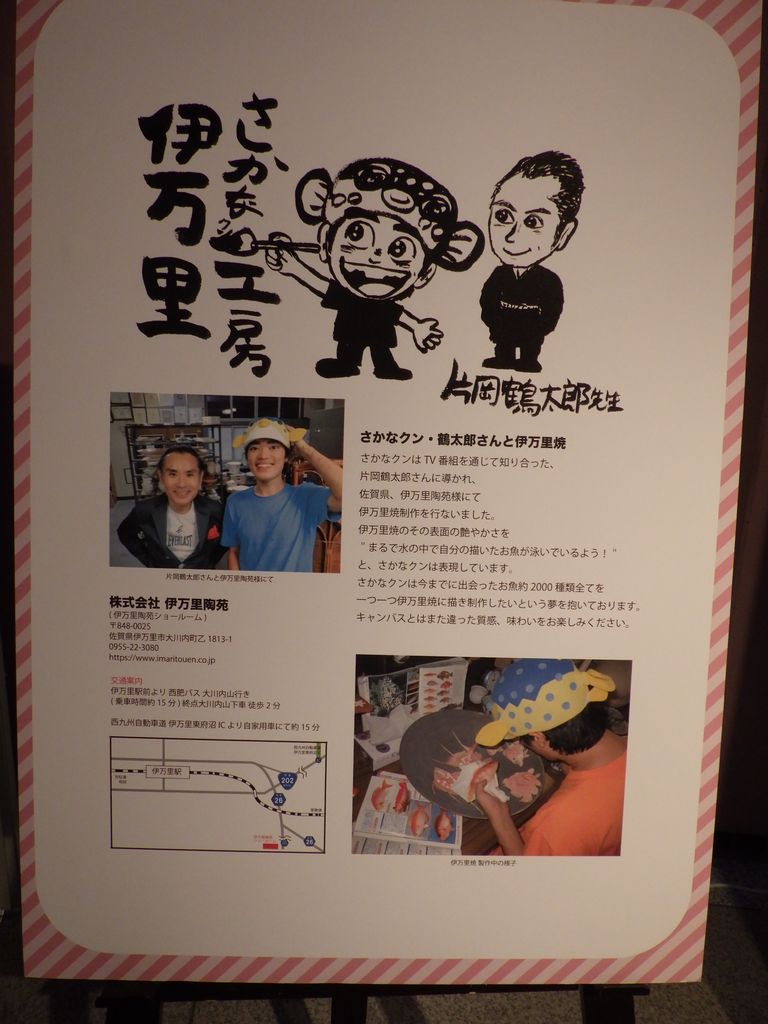 さかなクン工房
伊万里
片岡鶴太郎先生
EVERLAST
片岡鶴太郎さんと伊万里陶苑様にて
さかなクン・鶴太郎さんと伊万里焼
さかなクンは TV 番組を通じて知り合った、
片岡鶴太郎さんに導かれ、
佐賀県、伊万里陶苑様にて
伊万里焼制作を行ないました。
伊万里焼のその表面の艶やかさを
"まるで水の中で自分の描いたお魚が泳いでいるよう！"
と、さかなクンは表現しています。
さかなクンは今までに出会ったお魚約 2000 種類全てを
一つ一つ伊万里焼に描き制作したいという夢を抱いております。
キャンバスとはまた違った質感、味わいをお楽しみください。
株式会社 伊万里陶苑
( 伊万里陶苑ショールーム )
〒848-0025
佐賀県伊万里市大川内町乙 1813-1
0955-22-3080
https://www.imaritouen.co.jp
交通案内
伊万里駅前より 西肥バス 大川内山行き
( 乗車時間約 15 分 ) 終点大川内山下車 徒歩 2 分
西九州自動車道 伊万里東府招 IC より自家用車にて約 15 分
伊万里駅
202
26
26
伊万里焼 製作中の様子